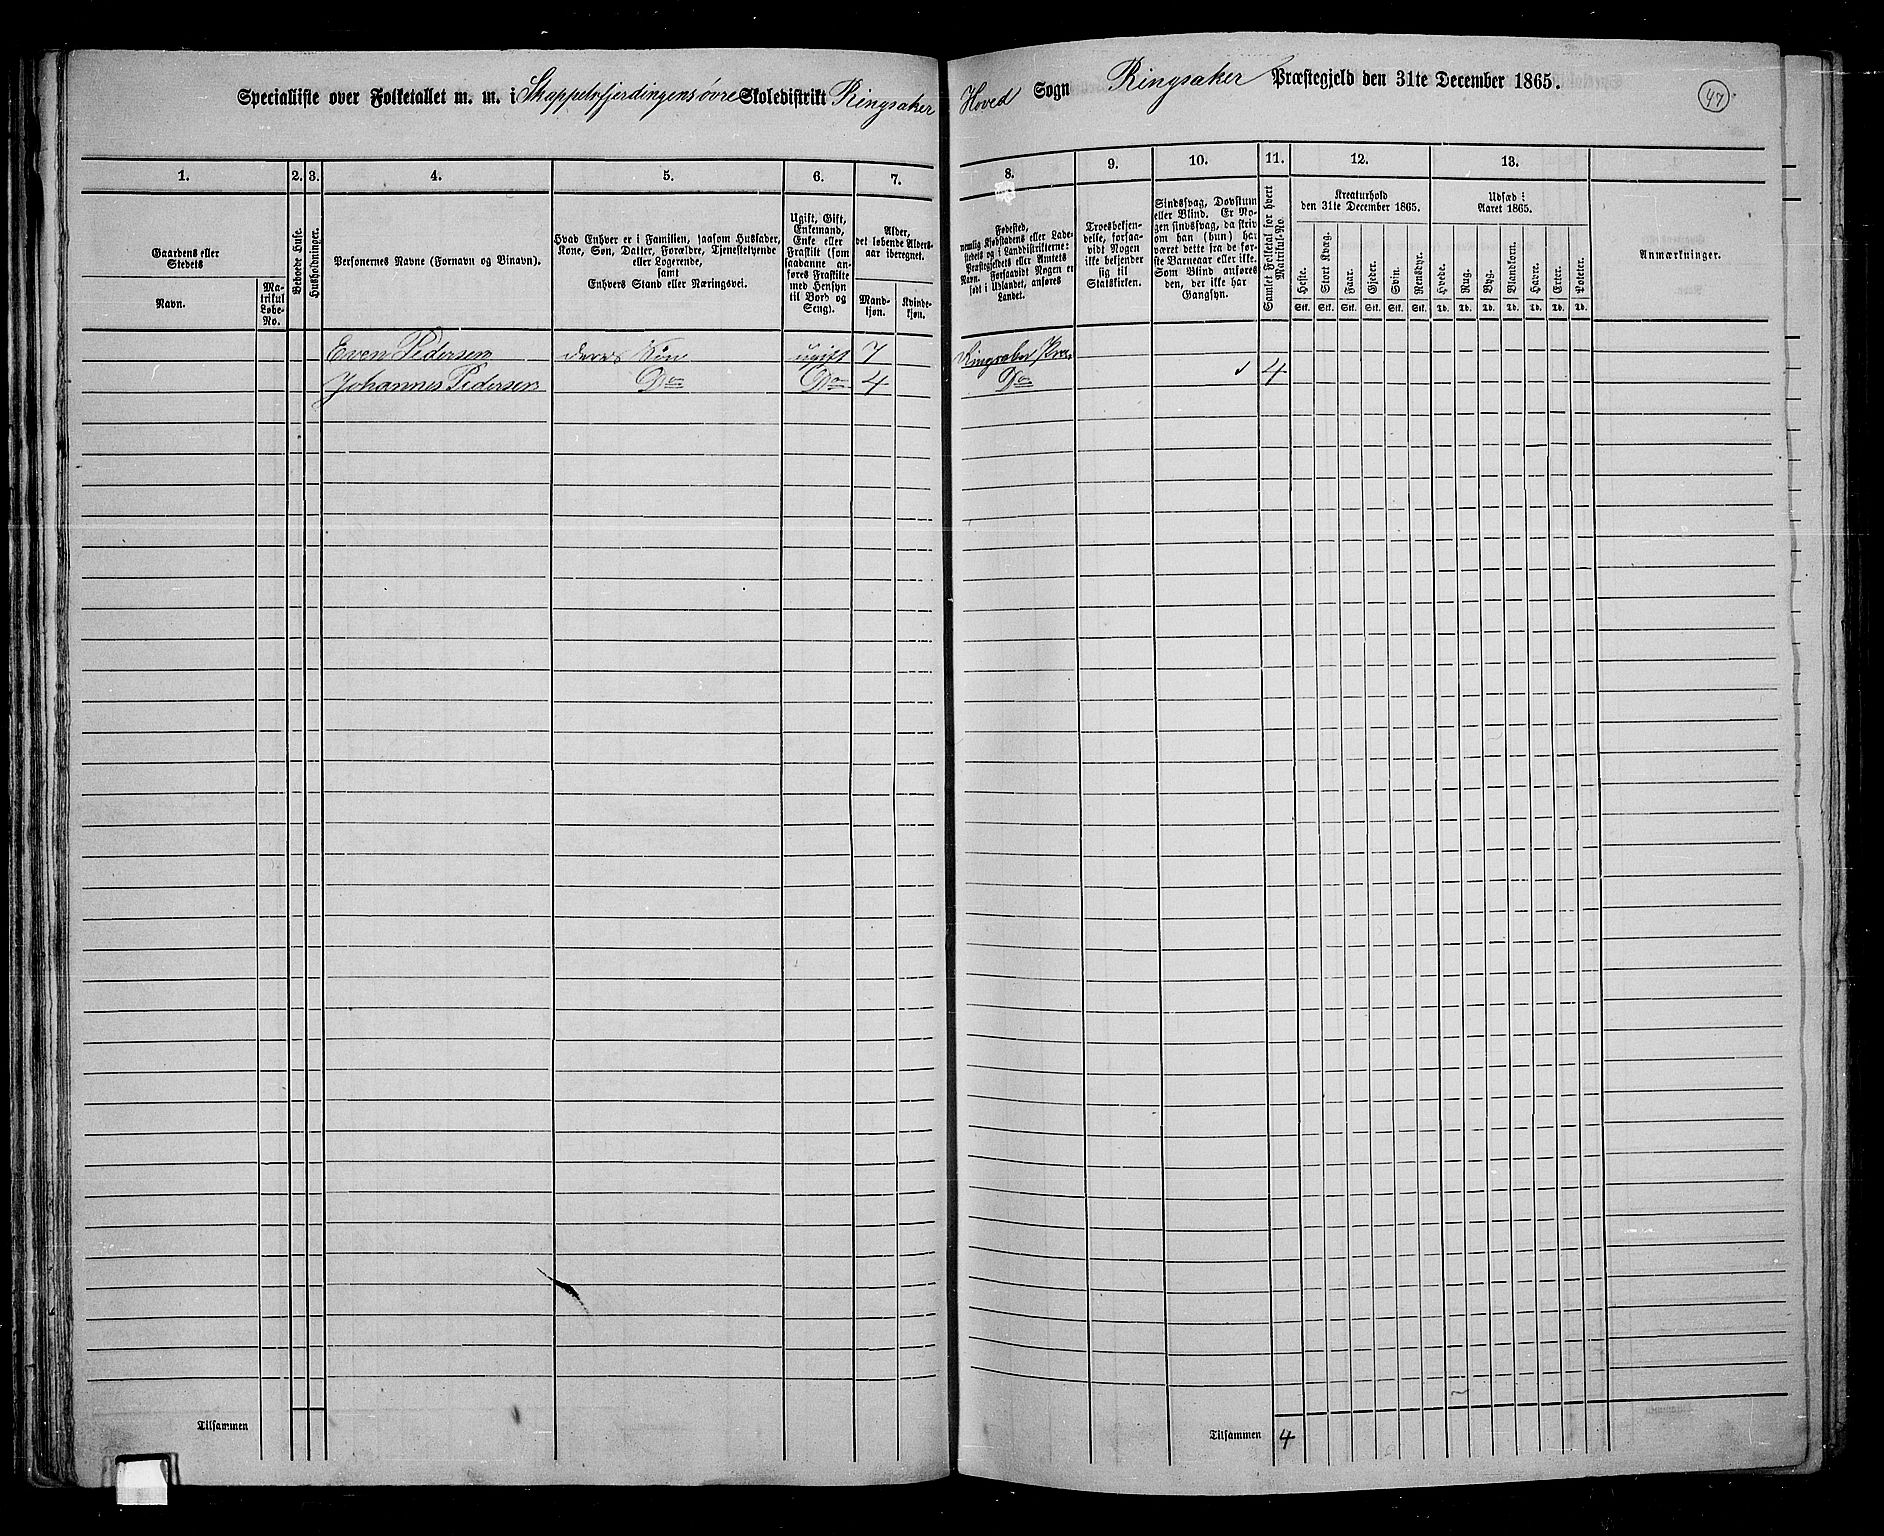 Specialliste over Folketallet m. m. i Skappelsfjerdingens øvre Skoledistrikt Ringsaker Hoved Sogn Ringsaker Præstegjeld den 31te December 1865.
47
1. 2. 3. 4. 5. 6. 7. 8. 9. 10. 11. 12. 13.
Gaardens eller Stedets
Navn.
Matrikul Løbe-No.
Beboede Huse.
Husholdninger.
Personernes Navne (Fornavn og Binavn).
Hvad Enhver er i Familien, saasom Husfader,
Kone, Søn, Datter, Forældre, Tjenestetyende
eller Logerende,
samt
Enhvers Stand eller Næringsvei.
Ugift, Gift,
Enkemand,
Enke eller
Fraskilt (som
saadanne an-
føres Fraskilte
med Hensyn
til Bord og
Seng).
Alder,
det løbende Alders-
aar iberegnet.
Mand-
kjøn.
Kvinde-
kjøn.
Fødested,
nemlig Kjøbstadens eller Lade-
stedets og i Landdistrikterne:
Præstegjeldets eller Amtets
Navn. Forsaavidt Nogen er
født i Udlandet, anføres
Landet.
Troesbekjen-
delse, forsaa-
vidt Nogen
ikke bekjender
sig til
Statskirken.
Sindssvag, Døvstum
eller Blind. Er No-
gen sindssvag, da skriv
om han (hun) har
været dette fra de før-
ste Barneaar eller ikke.
Som Blind anføres
den, der ikke har
Gangsyn.
Samlet Folketal for hvert
Matrikul-No.
Kreaturhold
den 31te December 1865.
Heste. Stort Kvæg. Faar. Gjeder. Svin. Rensdyr.
Stk. Stk. Stk. Stk. Stk. Stk.
Udsæd i
Aaret 1865.
Hvede. Rug. Byg. Blandkorn. Havre. Erter. Poteter.
Td. Td. Td. Td. Td. Td. Td.
Anmærkninger.
Even Pedersen deres Søn ugift 7 Ringsaker Præ.
Johannes Pedersen Do Do 4 Do 4
Tilsammen
Tilsammen 4